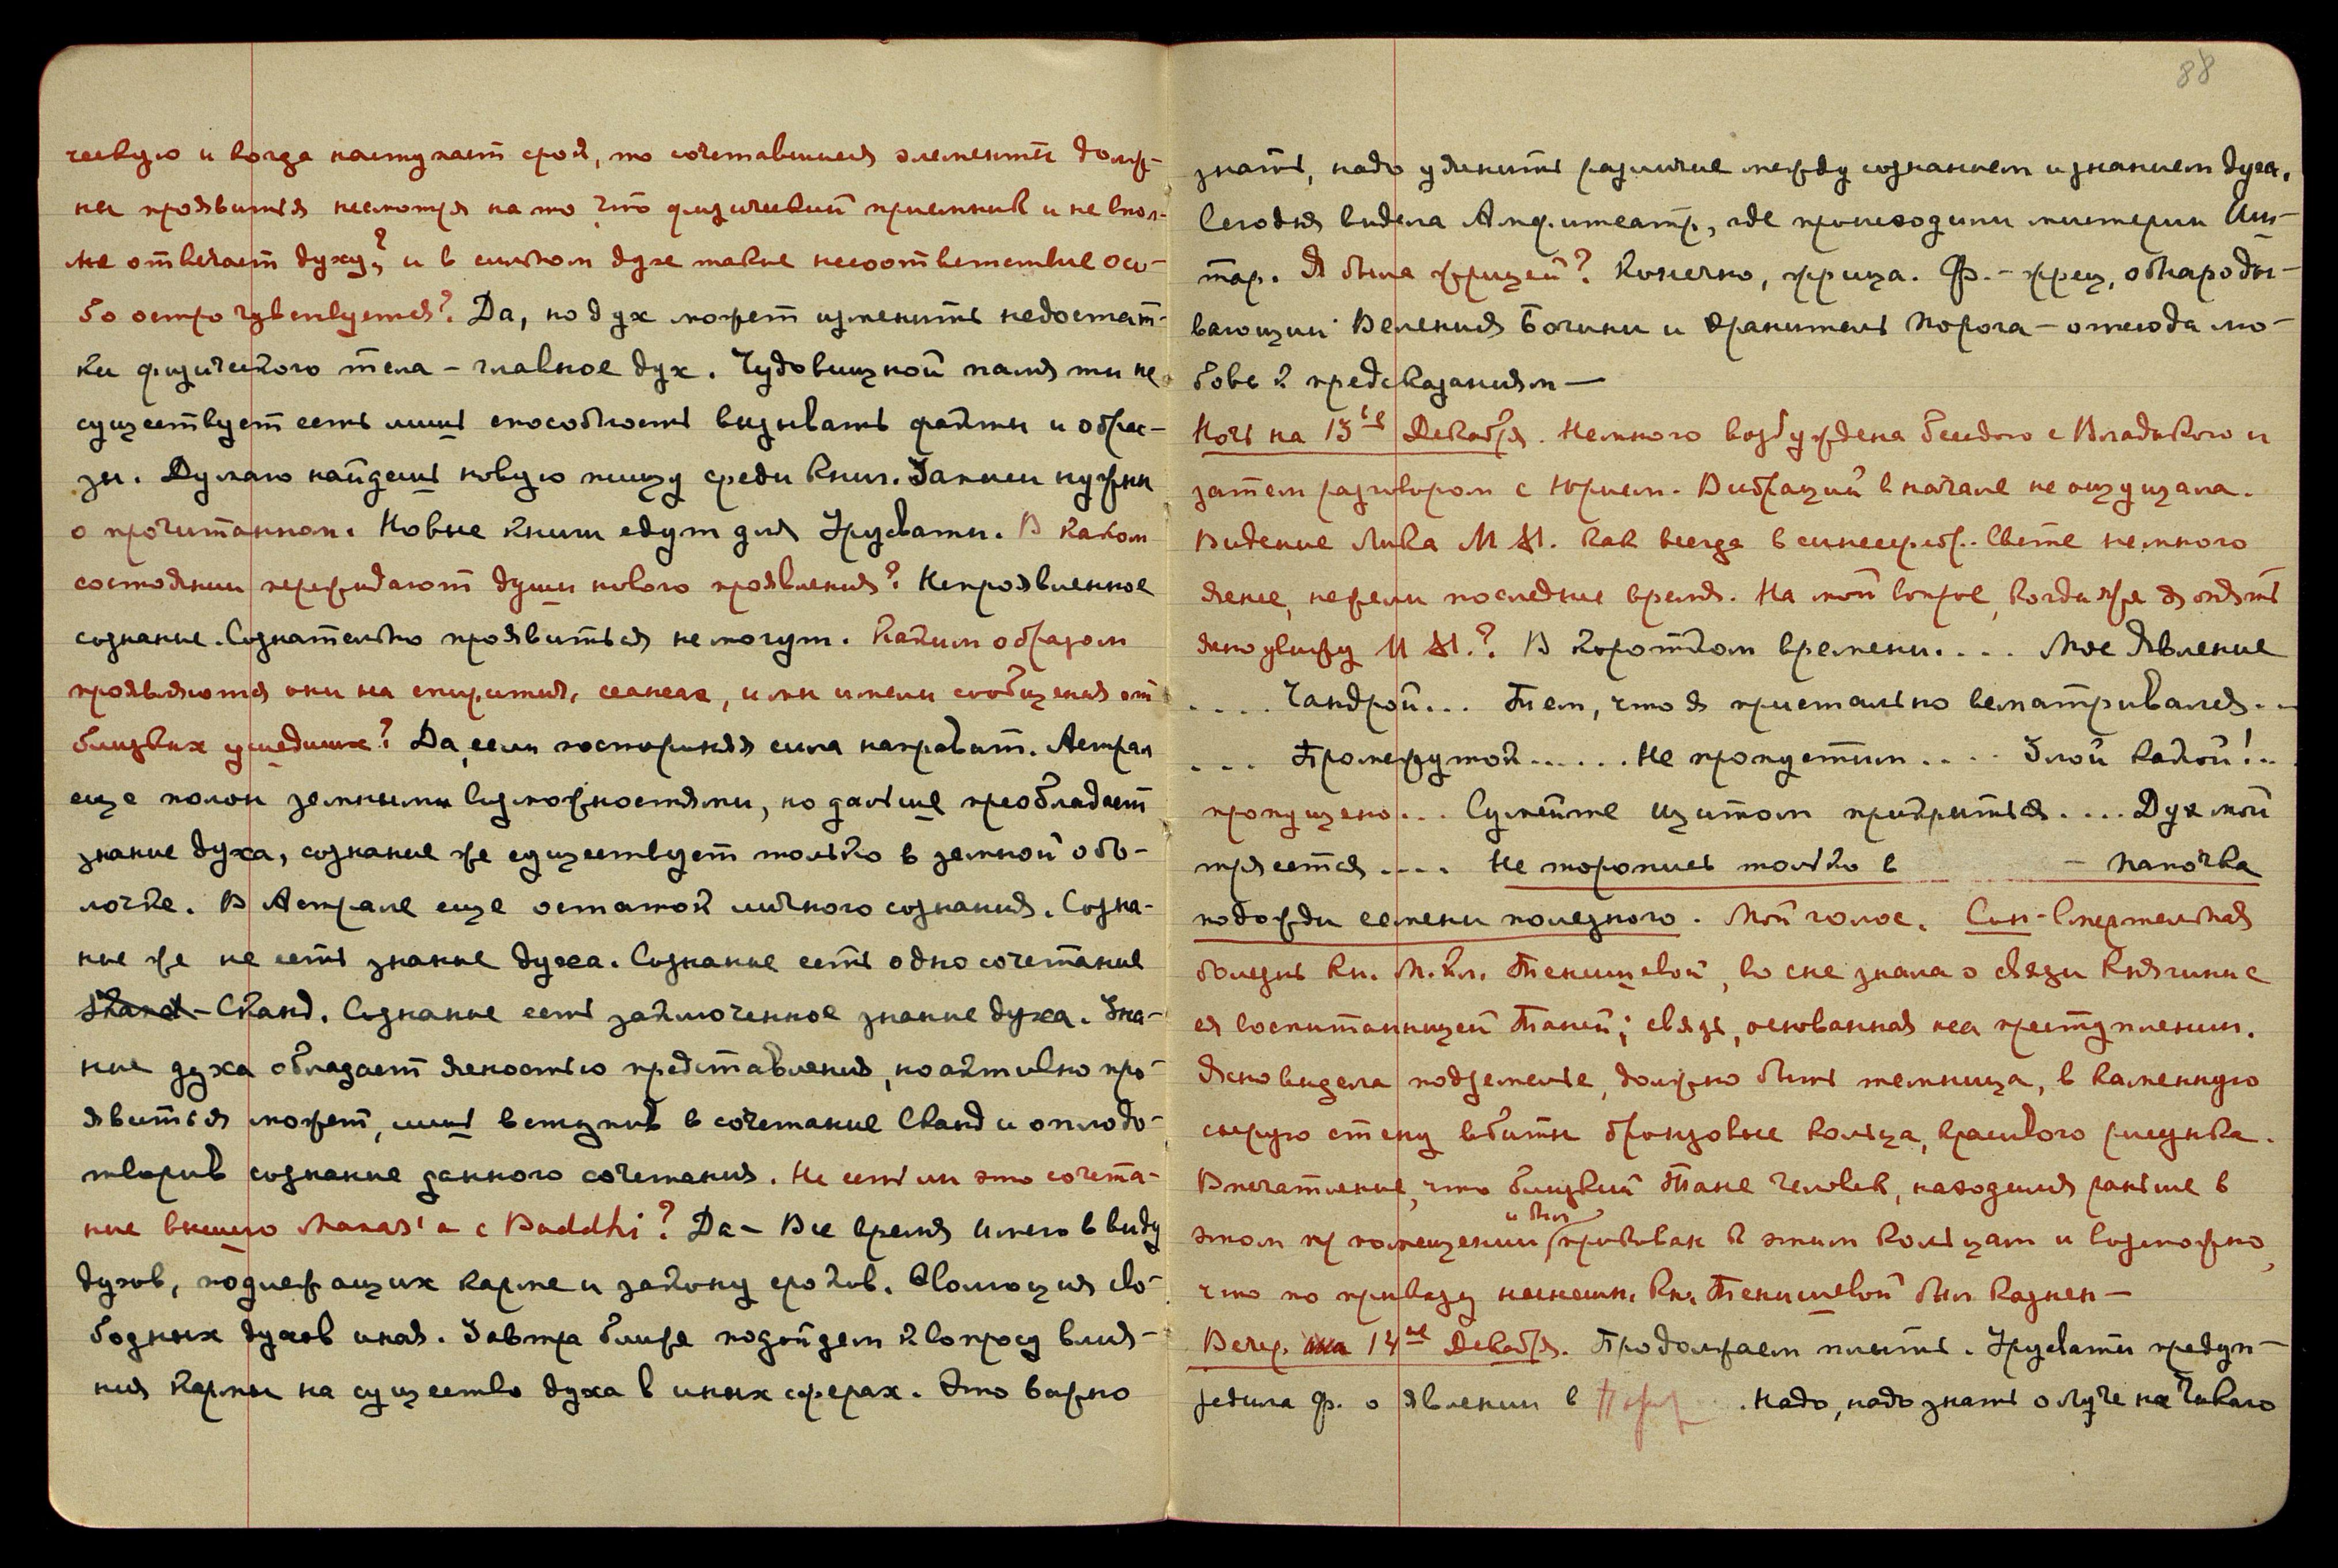 ческую и когда наступает срок, то сочетавшиеся элементы долж-
ны проявиться несмотря на то что физический приемник и не впол-
не отвечает духу? и в сильном духе такие несоответствие осо-
бо остро чувствуется? Да, но дух может изменить недостат-
ки физического тела – главное дух. Чудовищной памяти не
существует есть лишь способность вызывать факты и обра-
зы. Думаю найдешь новую пищу среди книг. Записи нужны
о прочитанном. Новые книги едут для Урусвати. В каком
состоянии пережидают души нового проявления? Непроявленное
сознание. Сознательно проявиться не могут. Каким образом
проявляются они на спиритич. сеансах, и мы имели сообщения от
близких ушедших? Да, если посторонняя сила направит. Астрал
еще полон земными возможностями, но дальше преобладает
знание духа, сознание же существует только в земной обо-
лочке. В Астрале еще остаток личного сознания. Созна-
ние же не есть знание духа. Сознание есть одно сочетание
Skand – Сканд. Сознание есть заключенное знание духа. Зна-
ние духа обладает ясностью представления, но активно про-
явиться может, лишь вступив в сочетание Сканд и оплодо-
творив сознание данного сочетания. Не есть ли это сочета-
ние высшего Manas'а с Buddhi? Да – Все время имею в виду
духов, подлежащих карме и закону сроков. Эволюция сво-
бодных духов иная. Завтра ближе подойдем к вопросу влия-
ния кармы на существо духа в иных сферах. Это важно
88
знать, надо уяснить различие между сознанием и знанием духа.
Сегодня видела Амфитеатр, где происходили мистерии Иш-
тар. Я была жрицей? Конечно, жрица. Ф. – жрец, обнароды-
вающий Веления Богини и Хранитель порога – отсюда лю-
бовь к предсказаниям —
Ночь на 13ое Декабря. Немного возбуждена беседою с Владыкою и
затем разговором с Юрием. Вибраций в начале не ощущала.
Видение Лика М М. как всегда в синесеребр. Свете немного
яснее, нежели последнее время. На мой вопрос, когда же я опять
ясно увижу М М.? В коротком времени.... Мое Явление
.... Чандрой... Тем, что я пристально всматривался...
... Промежуток...... Не пропустим.... Злой какой!..
пропущено... Сумейте щитом прикрыться.... Дух мой
трясется.... Не торопись только в – папочка
подожди семени полезного. Мой голос. Сон – Смертельная
болезнь Кн. М. Кл. Тенишевой, во сне знала о связи Княгини с
ея воспитанницей Таней; связь, основанная на преступлении.
Ясно видела подземелье, должно быть темница, в каменную
серую стену вбиты бронзовые кольца, красивого рисунка.
Впечатление, что близкий Тане человек, находился раньше в
этом помещении и был прикован к этим кольцам и возможно,
что по приказу нынешн. Кн. Тенишевой был казнен —
Вечер 14ое Декабря. Продолжаем плыть. Урусвати предуп-
редила Ф. о явлении в . Надо, надо знать о Луче на